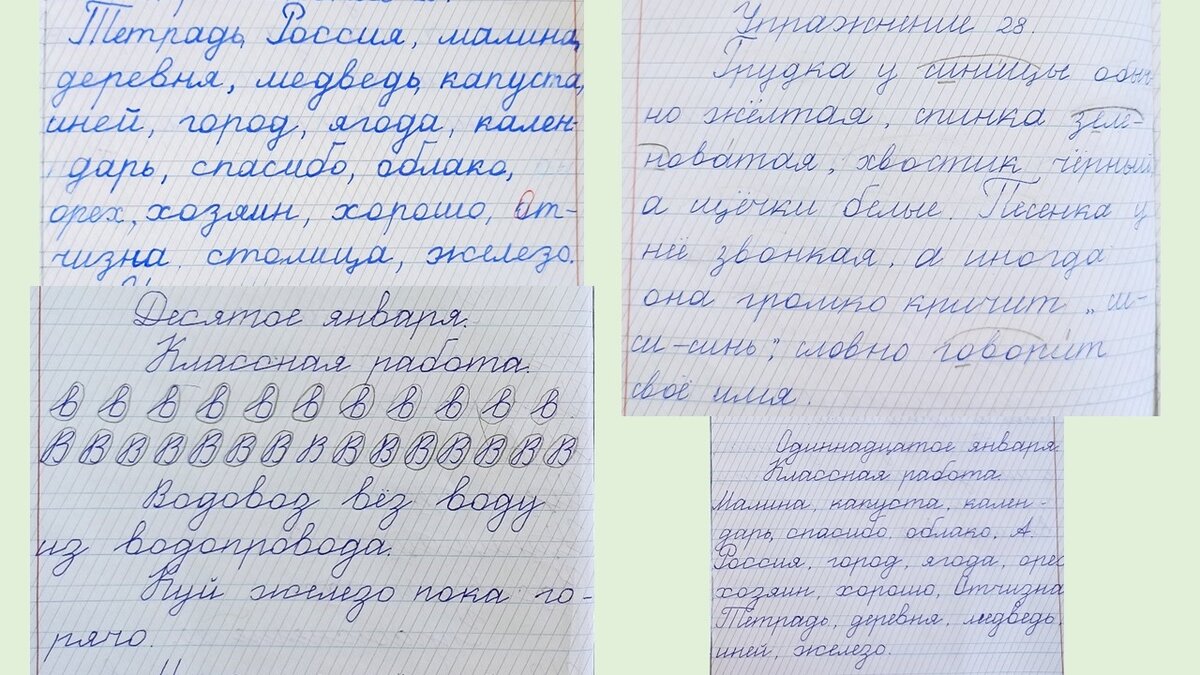 Тетрадь, Россия, малина,
деревня, медведь, капуста,
иней, город, ягода, кален-
дарь, спасибо, облако,
орех, хозяин, хорошо, От-
чизна. столица, железо.
Десятое января.
Классная работа.
в в в в в в в в в в в
В В В В В В В В В В В В В В
Водовоз вёз воду
из водопровода.
Куй железо пока го-
рячо.
Упражнение 28.
Грудка у синицы обыч-
но жёлтая, спинка зеле-
новатая, хвостик чёрный,
а щёчки белые. Песенка у
неё звонкая, а иногда
она громко кричит „си-
си-синь", словно говорит
своё имя.
Одиннадцатое января.
Классная работа.
Малина, капуста, кален-
дарь, спасибо, облако, А.
Россия, город, ягода, орех
хозяин, хорошо, Отчизна
Тетрадь, деревня, медведь,
иней, железо.